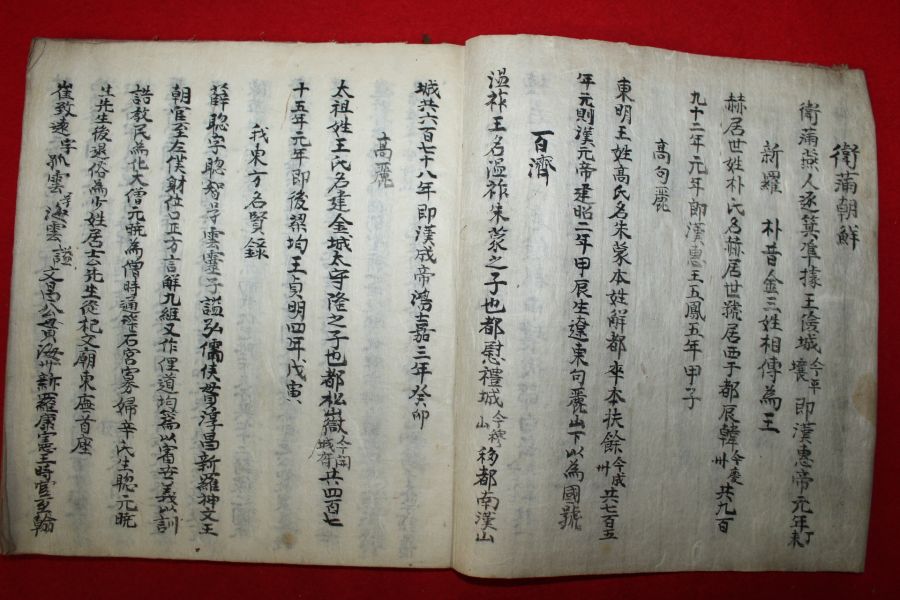 衛蒲朝鮮
衛蒲燕人逐箕準據王險城今平壤即漢惠帝元年丁未
新羅 朴昔金三姓相傳為王
赫居世姓朴氏名赫居世號居西于都辰韓今慶州共九百
九十二年元年即漢惠王五鳳五年甲子
高句麗
東明王姓高氏名朱蒙本姓解都卒本扶餘今成州共七百五
年元則漢元帝建昭二年甲辰生遼東句麗山下以為國號
百濟
溫祚王名溫祚朱蒙之子也都慰禮城今稷山移都南漢山
城共六百七十八年即漢成帝鴻嘉三年癸卯
高麗
太祖姓王氏名建金城太守隆之子也都松嶽今開城府共四百七
十五年元年即後梁均王貞明四年戊寅
我東方名賢錄
薛聡字聡智号雲靈子謚弘儒侯貫淳昌新羅神文王
朝官至左僕射位正方言解九經又作俚道均篇以富世義以訓
誥教民為化大僧元曉為僧時通瑤石宮寡婦辛氏生聡元曉
生先生後退俗為少姓居士公先生從祀文廟東廡首座
崔致遠字孤雲号海雲謚文昌公貫海州新羅康憲王時官至翰